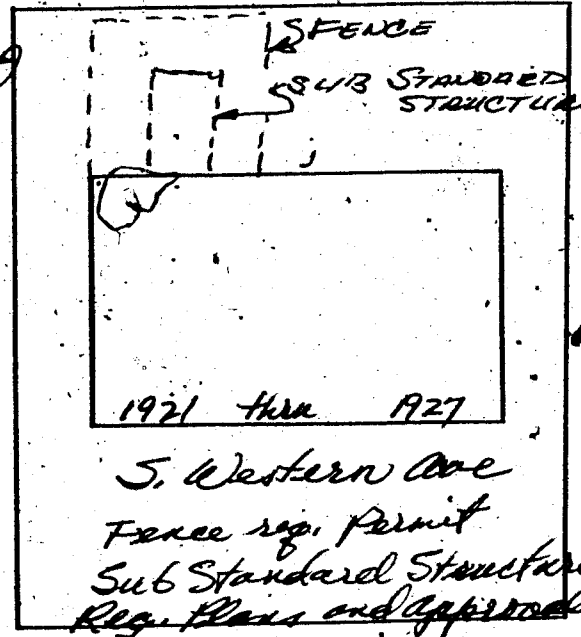 FENCE
SUB STANDARD
STRUCTUR
1921 thru 1927
S. Western Ave
Fence req. Permit
Sub Standard Structure
Req. Plans and Approval